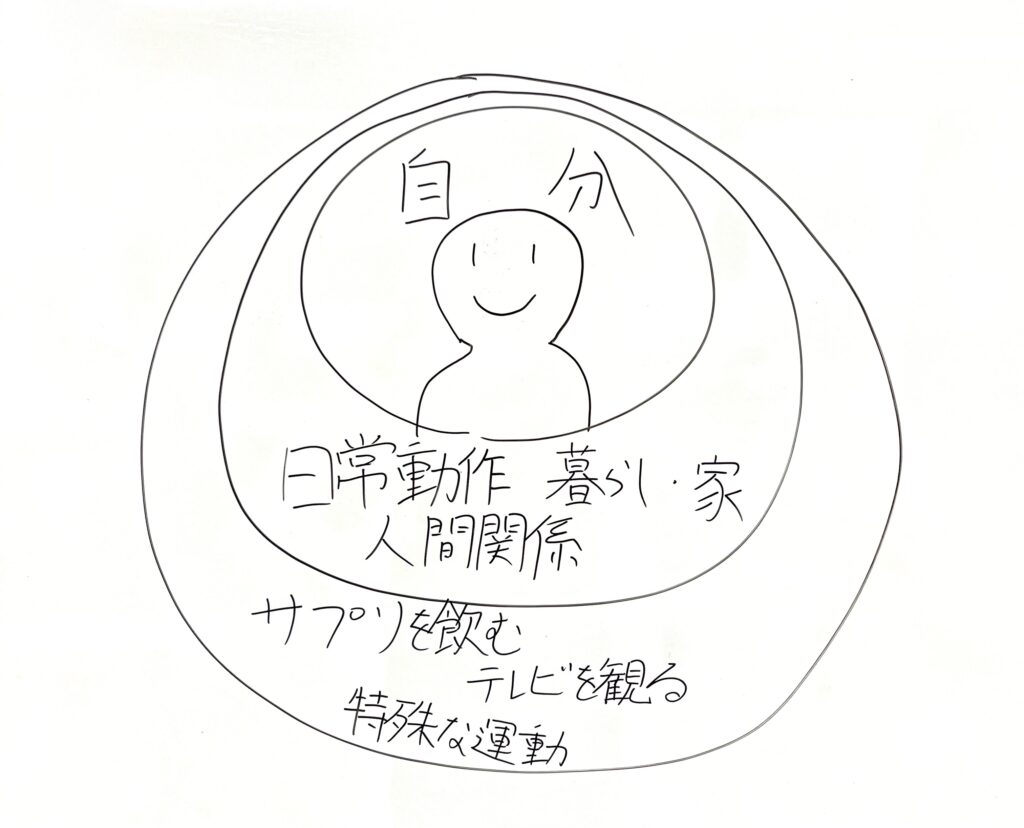 自分
日常動作 暮らし・家
人間関係
サプリを飲む
テレビを観る
特殊な運動